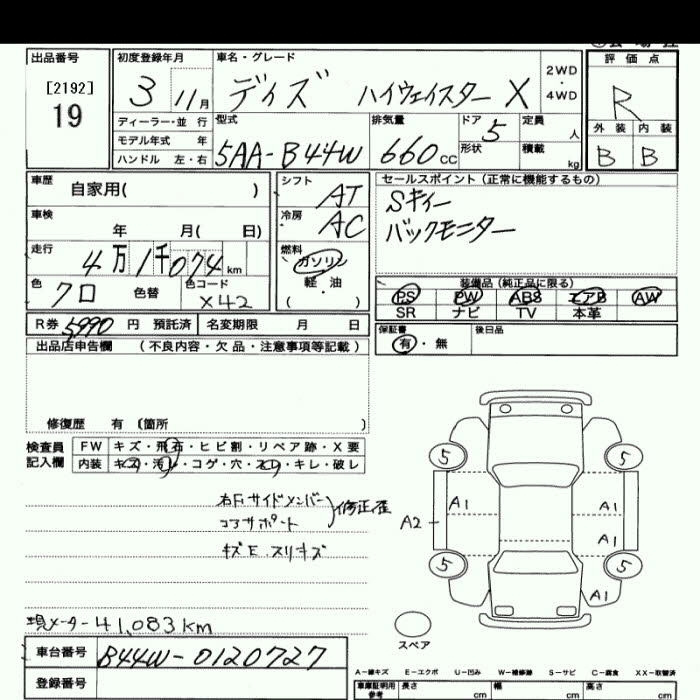 出品番号
[2192]
19
初度登録年月
3 11月
車名・グレード
デイズ ハイウェイスター X
2WD
・
4WD
評価点
R
外装 内装
B B
ディーラー・並 行
モデル年式 年
ハンドル 左・右
型式
5AA-B44W
排気量
660cc
ドア 5
形状
定員 人
積載 kg
車歴
自家用( )
車検
年 月( 日)
走行
4万1千074km
色 クロ 色替 色コード X42
シフト AT
冷房 AC
燃料
ガソリン
軽・油
( )
セールスポイント(正常に機能するもの)
Sキィー
バックモニター
装備品(純正品に限る)
PS PW ABS エアB AW
SR ナビ TV 本革
R券 5990 円 預託済 名変期限 月 日
保証書
有・無
後日品
出品店申告欄 (不良内容・欠品・注意事項等記載)
修復歴 有 〔箇所 〕
検査員
記入欄
FW キズ・飛石・ヒビ割・リペア跡・X要
内装 キズ・汚レ・コゲ・穴・スレ・キレ・破レ
右Fサイドメンバー
コアサポート
修正歪
キズE スリキズ
現メーター41,083km
5 5
A1 A1
A2 A1
5 5
A1
スペア
車台番号 B44W-0120727
登録番号
A-線キズ E-エクボ U-凹み W-補修跡 S-サビ C-腐食 XX-取替済
車庫証明用
参考
長さ cm 幅 cm 高さ cm